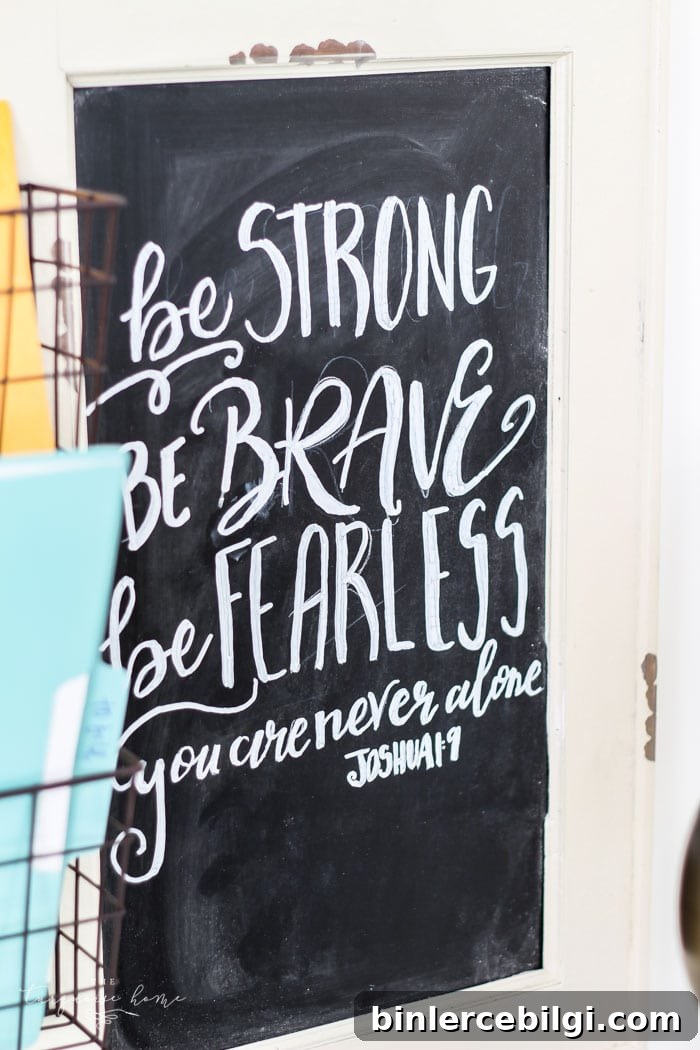 be STRONG
BE BRAVE
be FEARLESS
you are never alone
JOSHUA 1:9
THE
turquoise home
binlercebilgi.com